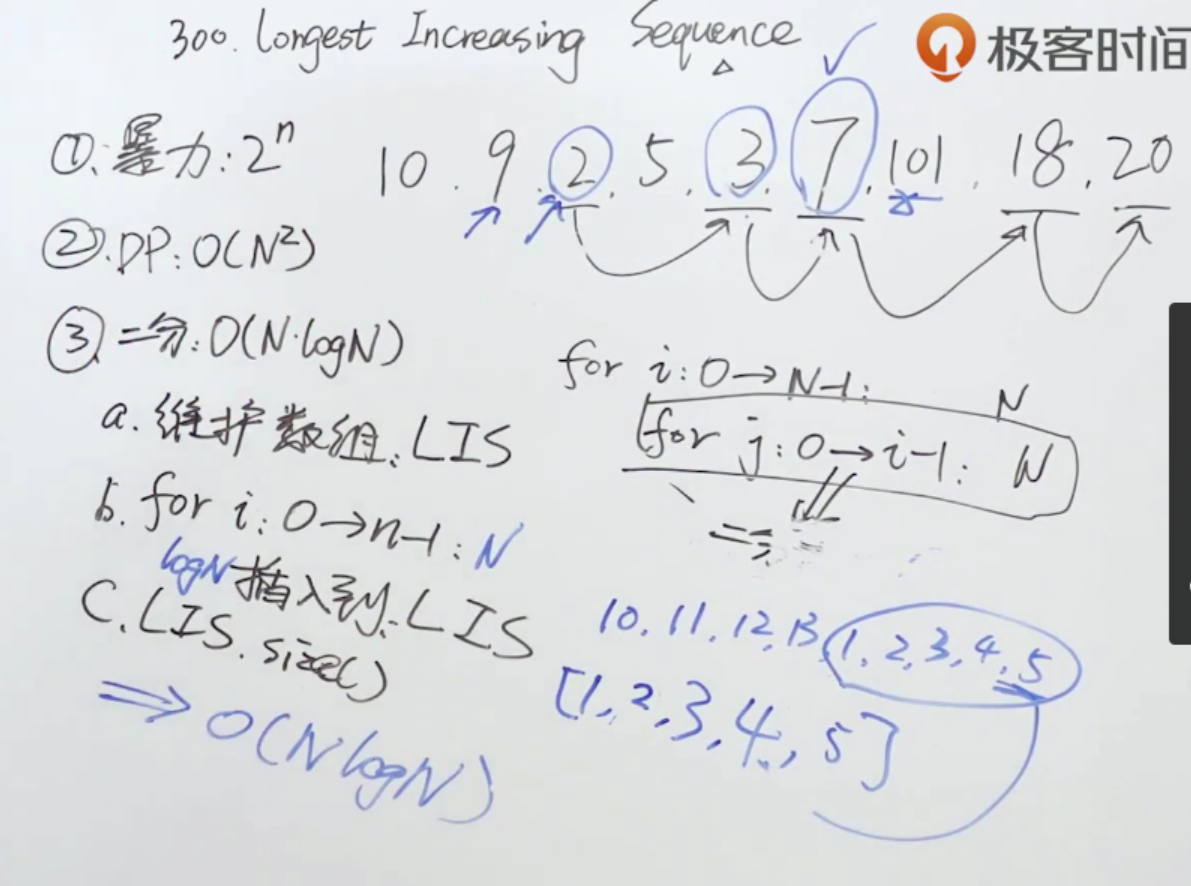 300. Longest Increasing Sequence
极客时间
①. 暴力: 2ⁿ
10. 9. 2. 5. 3. 7. 101. 18. 20
②. DP: O(N²)
③ 二分: O(N·logN)
a. 维护数组: LIS
b. for i: 0→n-1: N
logN 插入到: LIS
C. LIS. size()
⇒ O(N logN)
for i: 0→N-1: N
for j: 0→i-1: N
10. 11. 12, 13, 1, 2, 3, 4, 5
[1, 2, 3, 4, 5]